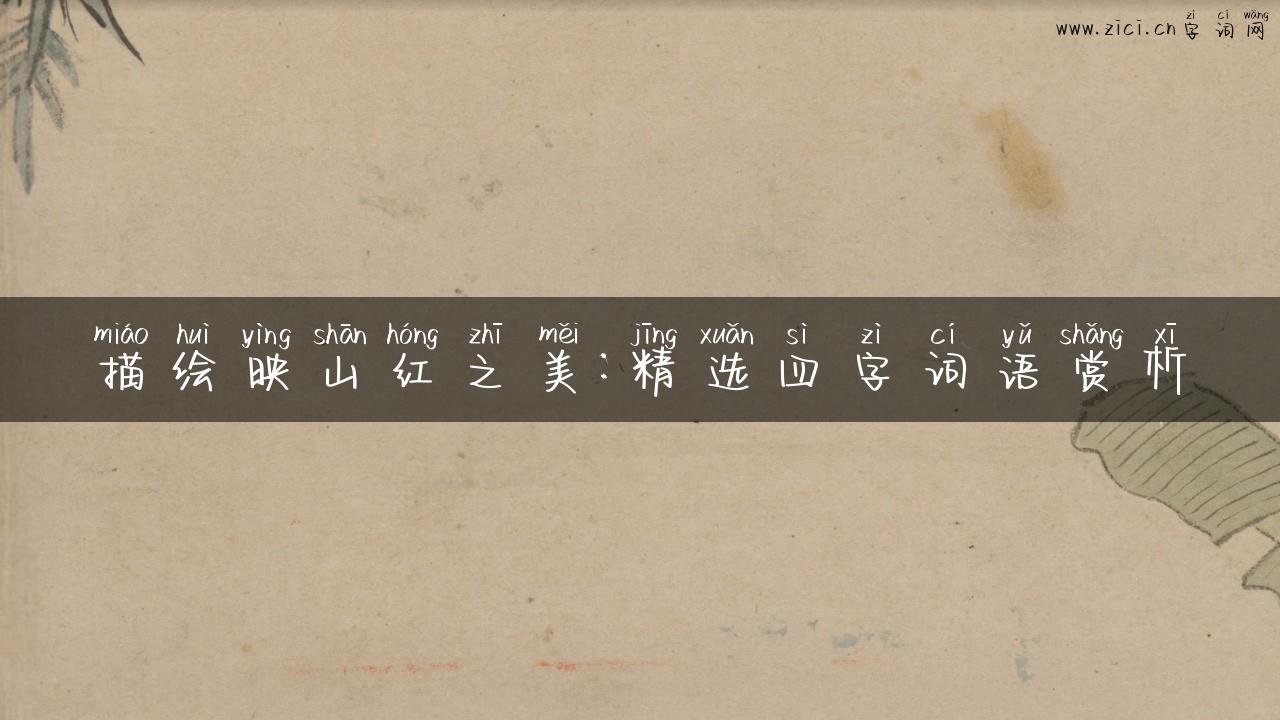 zì cí wǎng
www.zici.cn 字词网
miáo huì yìng shān hóng zhī měi jīng xuǎn sì zì cí yǔ shǎng xī
描绘映山红之美:精选四字词语赏析